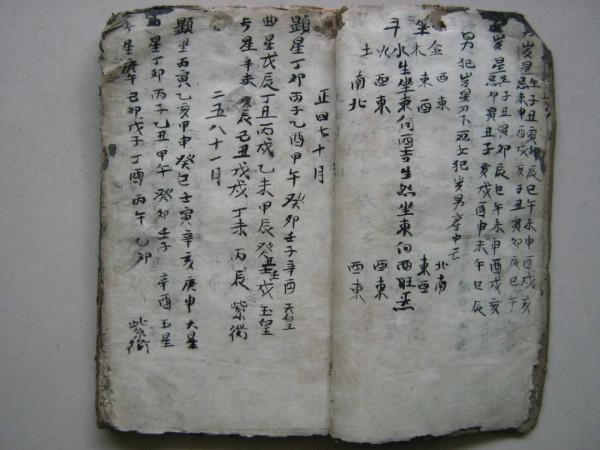 男岁星生子丑寅卯辰巳午未申酉戌亥
忌未申酉戌亥子丑寅卯辰巳午
岁星生子丑寅卯辰巳午未申酉戌亥
忌卯寅丑子亥戌酉申未午巳辰
男犯岁星刀下
犯岁男
坐 金木水火土
斗
東西 西東 南北
生坐東向西吉生然坐東向西旺
北南 東西 西東 西東
正四七十月
顕星丁卯丙子乙酉甲午癸卯壬子辛酉天皇
曲星戊辰丁丑丙戌乙未甲辰癸丑壬戌玉皇
星辛未庚辰己丑戊戌丁未丙辰紫微
二五八十一月
顕星丙寅乙亥甲申癸巳壬寅辛亥庚申大星
星丁卯丙子乙丑甲午癸卯壬子辛酉玉星
星庚午己卯戊子丁酉丙午乙卯紫微